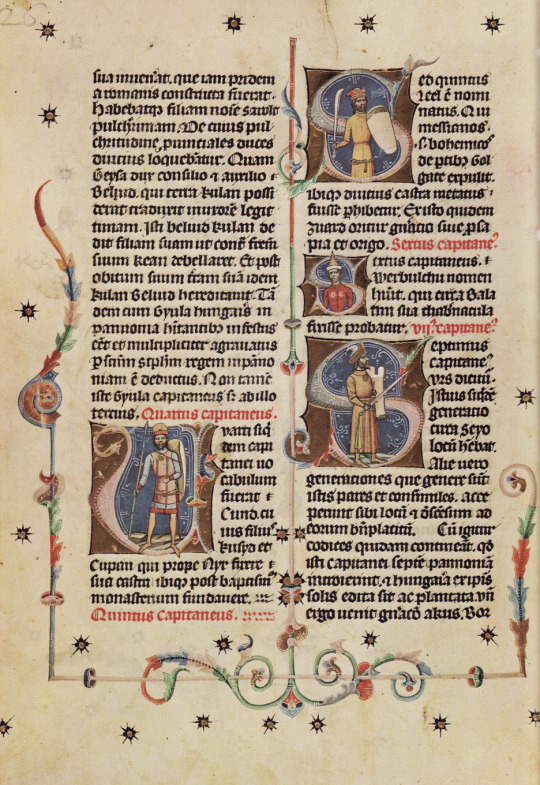 sua inuen̄at. que iam pridem
a romanis constructa fuerat.
Habebatqꝫ filiam noīe sarolt
pulch̄rimam. De cuius pul
chritudine, puinciales duces
diucius loquebātur. Quam
Geysa dux consilio & auxilio
Beliud. qui terrā kulan possi
debat traduxit in uxorē legit
timam. Isti beliud kulan de
dit filiam suam ut cont̄ frēm
suum kean debellaret. Et post
obitum suum t̄ram suā idem
kulan beliud hereditauit. Tā
dem cum Gyula hungaīs in
pannonia h̄itantibꝫ infestus
eēt et multipliciter agrauatꝰ
p sc̄m stp̄hm regem in pāno
niam ē deductus. Non tamē
iste Gyula capitaneus sꝫ ab illo
tercius. Quartus capitaneus.
Quarti siq̄
dem capi
tanei uo
cabulum
fuerat
Cund. cui
us filiuſ
kusyd et
Cupan qui prope Nyr fixere
sua castra ibiqꝫ post baptism̄
monasterium fundauere.
Quintus capitaneus.
Sed quintus
Leel ē nomi
natus. Qui
messianos.
& bohemicos
de ptibꝫ Gol
gate expulit.
ibiqꝫ diucius castra metatus
fuisse phibetur. Ex isto quidem
zuard oritur gn̄acio siue psa
pia et origo. Sextus capitaneꝰ
Sextus capitaneus.
Werbulchu nomen
h̄uit. qui circa Bala
tin sua thabernacula
fuisse probatur. viiꝰ capitaneꝰ
Septimus
capitaneꝰ
Vrs dictꝰ ē.
Istius siq̄dē
generatio
circa seyo
locū h̄ebat.
Alie uero
generationes que genere sūt
istis pares et consimiles. acce
perunt sibi locū & d̄scēsum ad
eorum bn̄placitū. Cū igitur
codices quidam contineāt. qd̄
isti capitanei septē pannoniā
introierint. & hungaīa ex ipīs
solis edita sit ac plantata. vn̄
ergo uenit gn̄acō akus. Bor